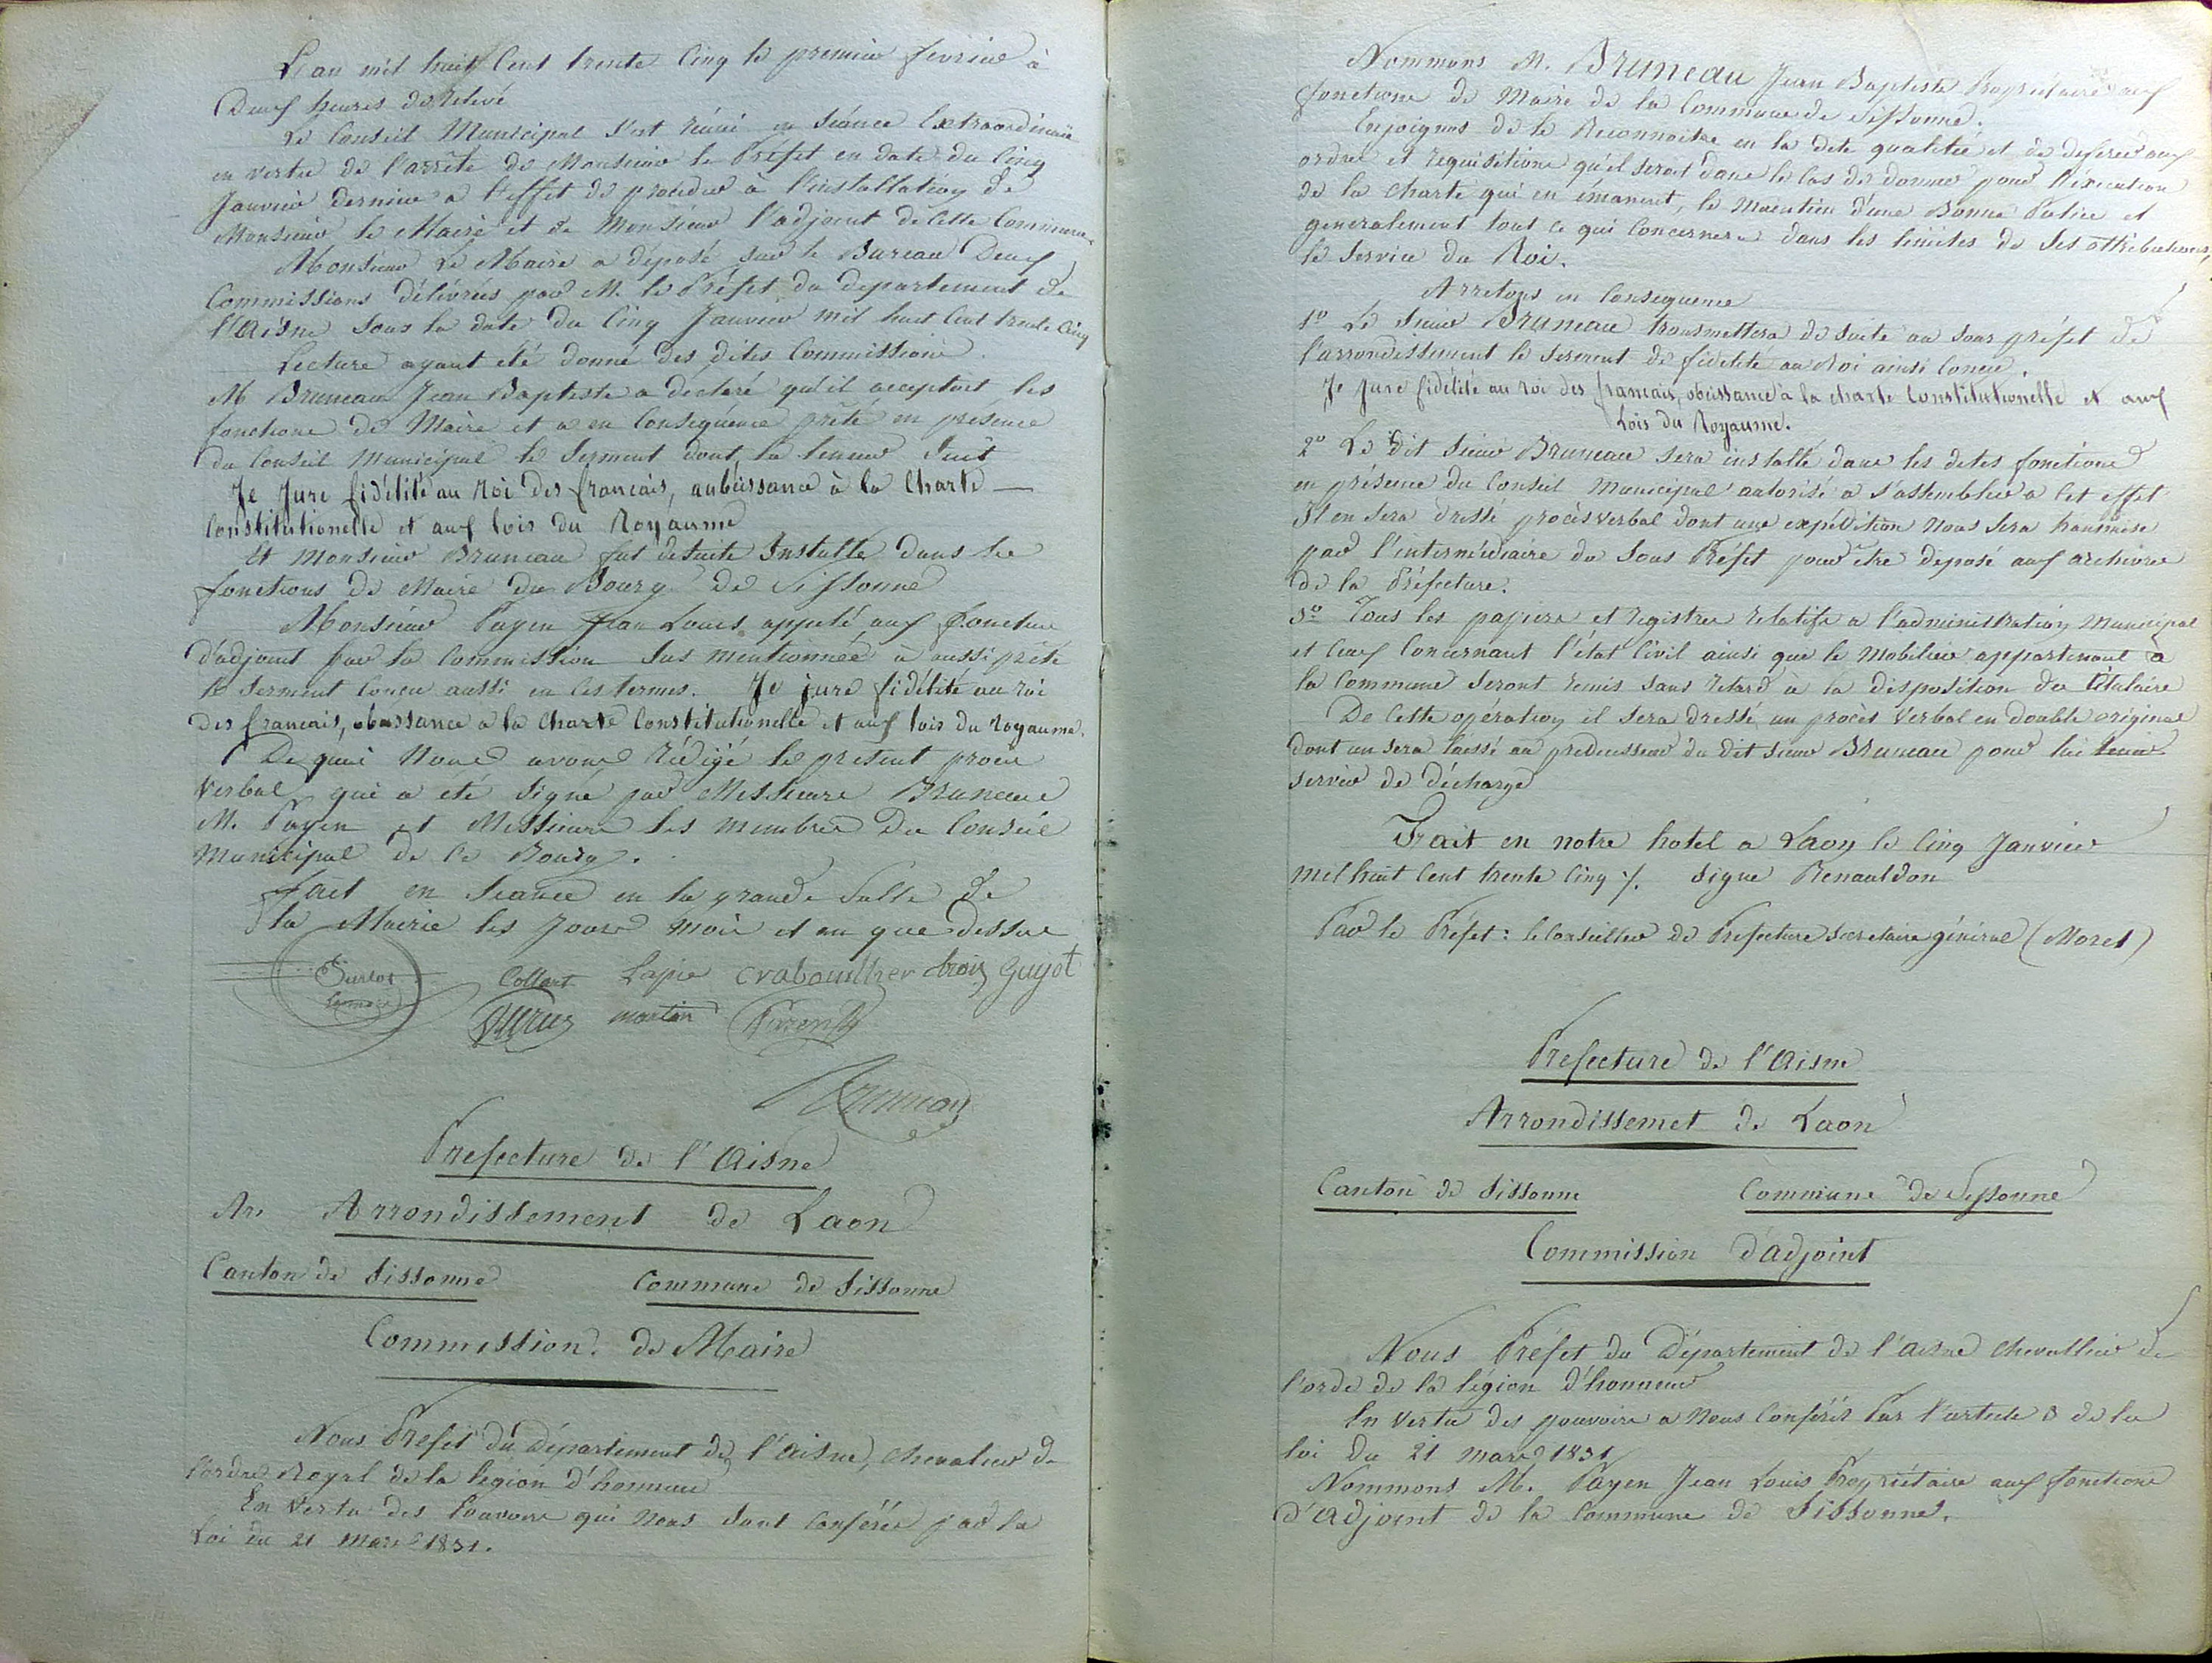 L'an mil huit Cent trente Cinq le premier fevrier à
Deux heures de relevé
Le Conseil Municipal s'est réuni en séance Extraordinaire
en vertu de l'arrêté de Monsieur le Préfet en date du Cinq
Janvier dernier a l'effet de proceder à l'installation de
Monsieur le Maire et de Monsieur l'adjoint de Cette Commune
Monsieur Le Maire a déposé sur le Bureau Deux
Commissions délivrées par M. le Préfet du departement de
l'Aisne sous la date du Cinq Janvier mil huit Cent trente Cinq
Lecture ayant été donné des dites Commissions.
M Bruneau Jean Baptiste a declaré qu'il acceptait les
fonctions de Maire et a en Conséquence prêté en présence
du Conseil Municipal le Serment dont la teneur Suit
Je Jure fidélité au Roi des francais, aubéissance à la Charte
Constitutionelle et aux lois du Royaume
Et Monsieur Bruneau fut desuite Installé dans les
fonctions de Maire du Bourg de Sissonne
Monsieur Payen Jean Louis appelé aux fonctions
d'adjoint par la Commission Sus mentionnée à aussi prêté
le Serment Conçu aussi en Ces termes. Je jure fidélité au roi
des francais, obeissance a la Charte Constitutionelle et aux lois du royaume.
De quoi Nous avons rédigé le présent procès
Verbal qui a été Signé par Messieurs Bruneau
M. Payen et Messieurs les membres du Conseil
Municipal de ce Bourg.
fait en Seance en la grande Salle de
la Mairie les Jour mois et an que dessus
Collart Lapie Crabouillier trois Guyot
martin
Bruneau
Prefecture de l'Aisne
Ar. Arrondissement de Laon
Canton de Sissonne Commune de Sissonne
Commission de Maire
Nous Préfet du Département de l'Aisne, Chevalier de
l'ordre Royal de la légion d'honneur
En Vertu des Pouvoirs qui Nous Sont Conférés par la
Loi du 21 Mars 1831.
Nommons M. Bruneau Jean Baptiste Propriétaire aux
fonctions de Maire de la Commune de Sissonne.
Enjoignons de le Reconnoitre en la dite qualitée et de deferer aux
ordres et requisitions qu'il serait dans le Cas de donner pour l'éxecution
de la Charte qui en émanent, le maintien d'une Bonne Police et
generalement tout ce qui Concernera dans les limites de Ses attributions,
le Service du Roi.
Arretons en Consequence
1º Le Sieur Bruneau transmettera de suite au sous préfet de
l'arrondissement le Serment de fidélité au Roi ainsi Concu.
Je Jure fidélité au roi des francais, obeissance à la charte Constitutionelle et aux
Lois du Royaume.
2º Le dit Sieur Bruneau Sera installé dans les dites fonctions
en présence du Conseil Municipal autorisé a S'assembler a Cet effet
Il en Sera dressé procès verbal dont une expédition Nous Sera transmise
par l'intermédiaire du Sous Préfet pour être déposé aux archives
de la Préfecture.
3º Tous les papiers et registres relatifs a l'administration Municipal
et Ceux Concernant l'état Civil ainsi que le Mobilier appartenant a
la Commune Seront remis Sans retard à la disposition du titulaire
De Cette opération il Sera dressé un procès Verbal en double original
dont un sera laissé au predecesseur du dit Sieur Bruneau pour lui tenir
servir de décharge
Frait en notre hotel a Laon le Cinq Janvier
mil huit Cent trente Cinq ./. Signe Renauldon
Par le Préfet : le Conseiller de Prefecture Secretaire général (Morel)
Préfecture de l'Aisne
Arrondissemet de Laon
Canton de Sissonne Commune de Sissonne
Commission d'adjoint
Nous Préfet du Département de l'Aisne Chevallier de
l'orde de la légion d'honneur
En vertu des pouvoirs a Nous Conférés Par l'article 3 de la
loi du 21 mars 1831
Nommons M. Payen Jean Louis Propriétaire aux fonctions
d'Adjoint de la Commune de Sissonne.